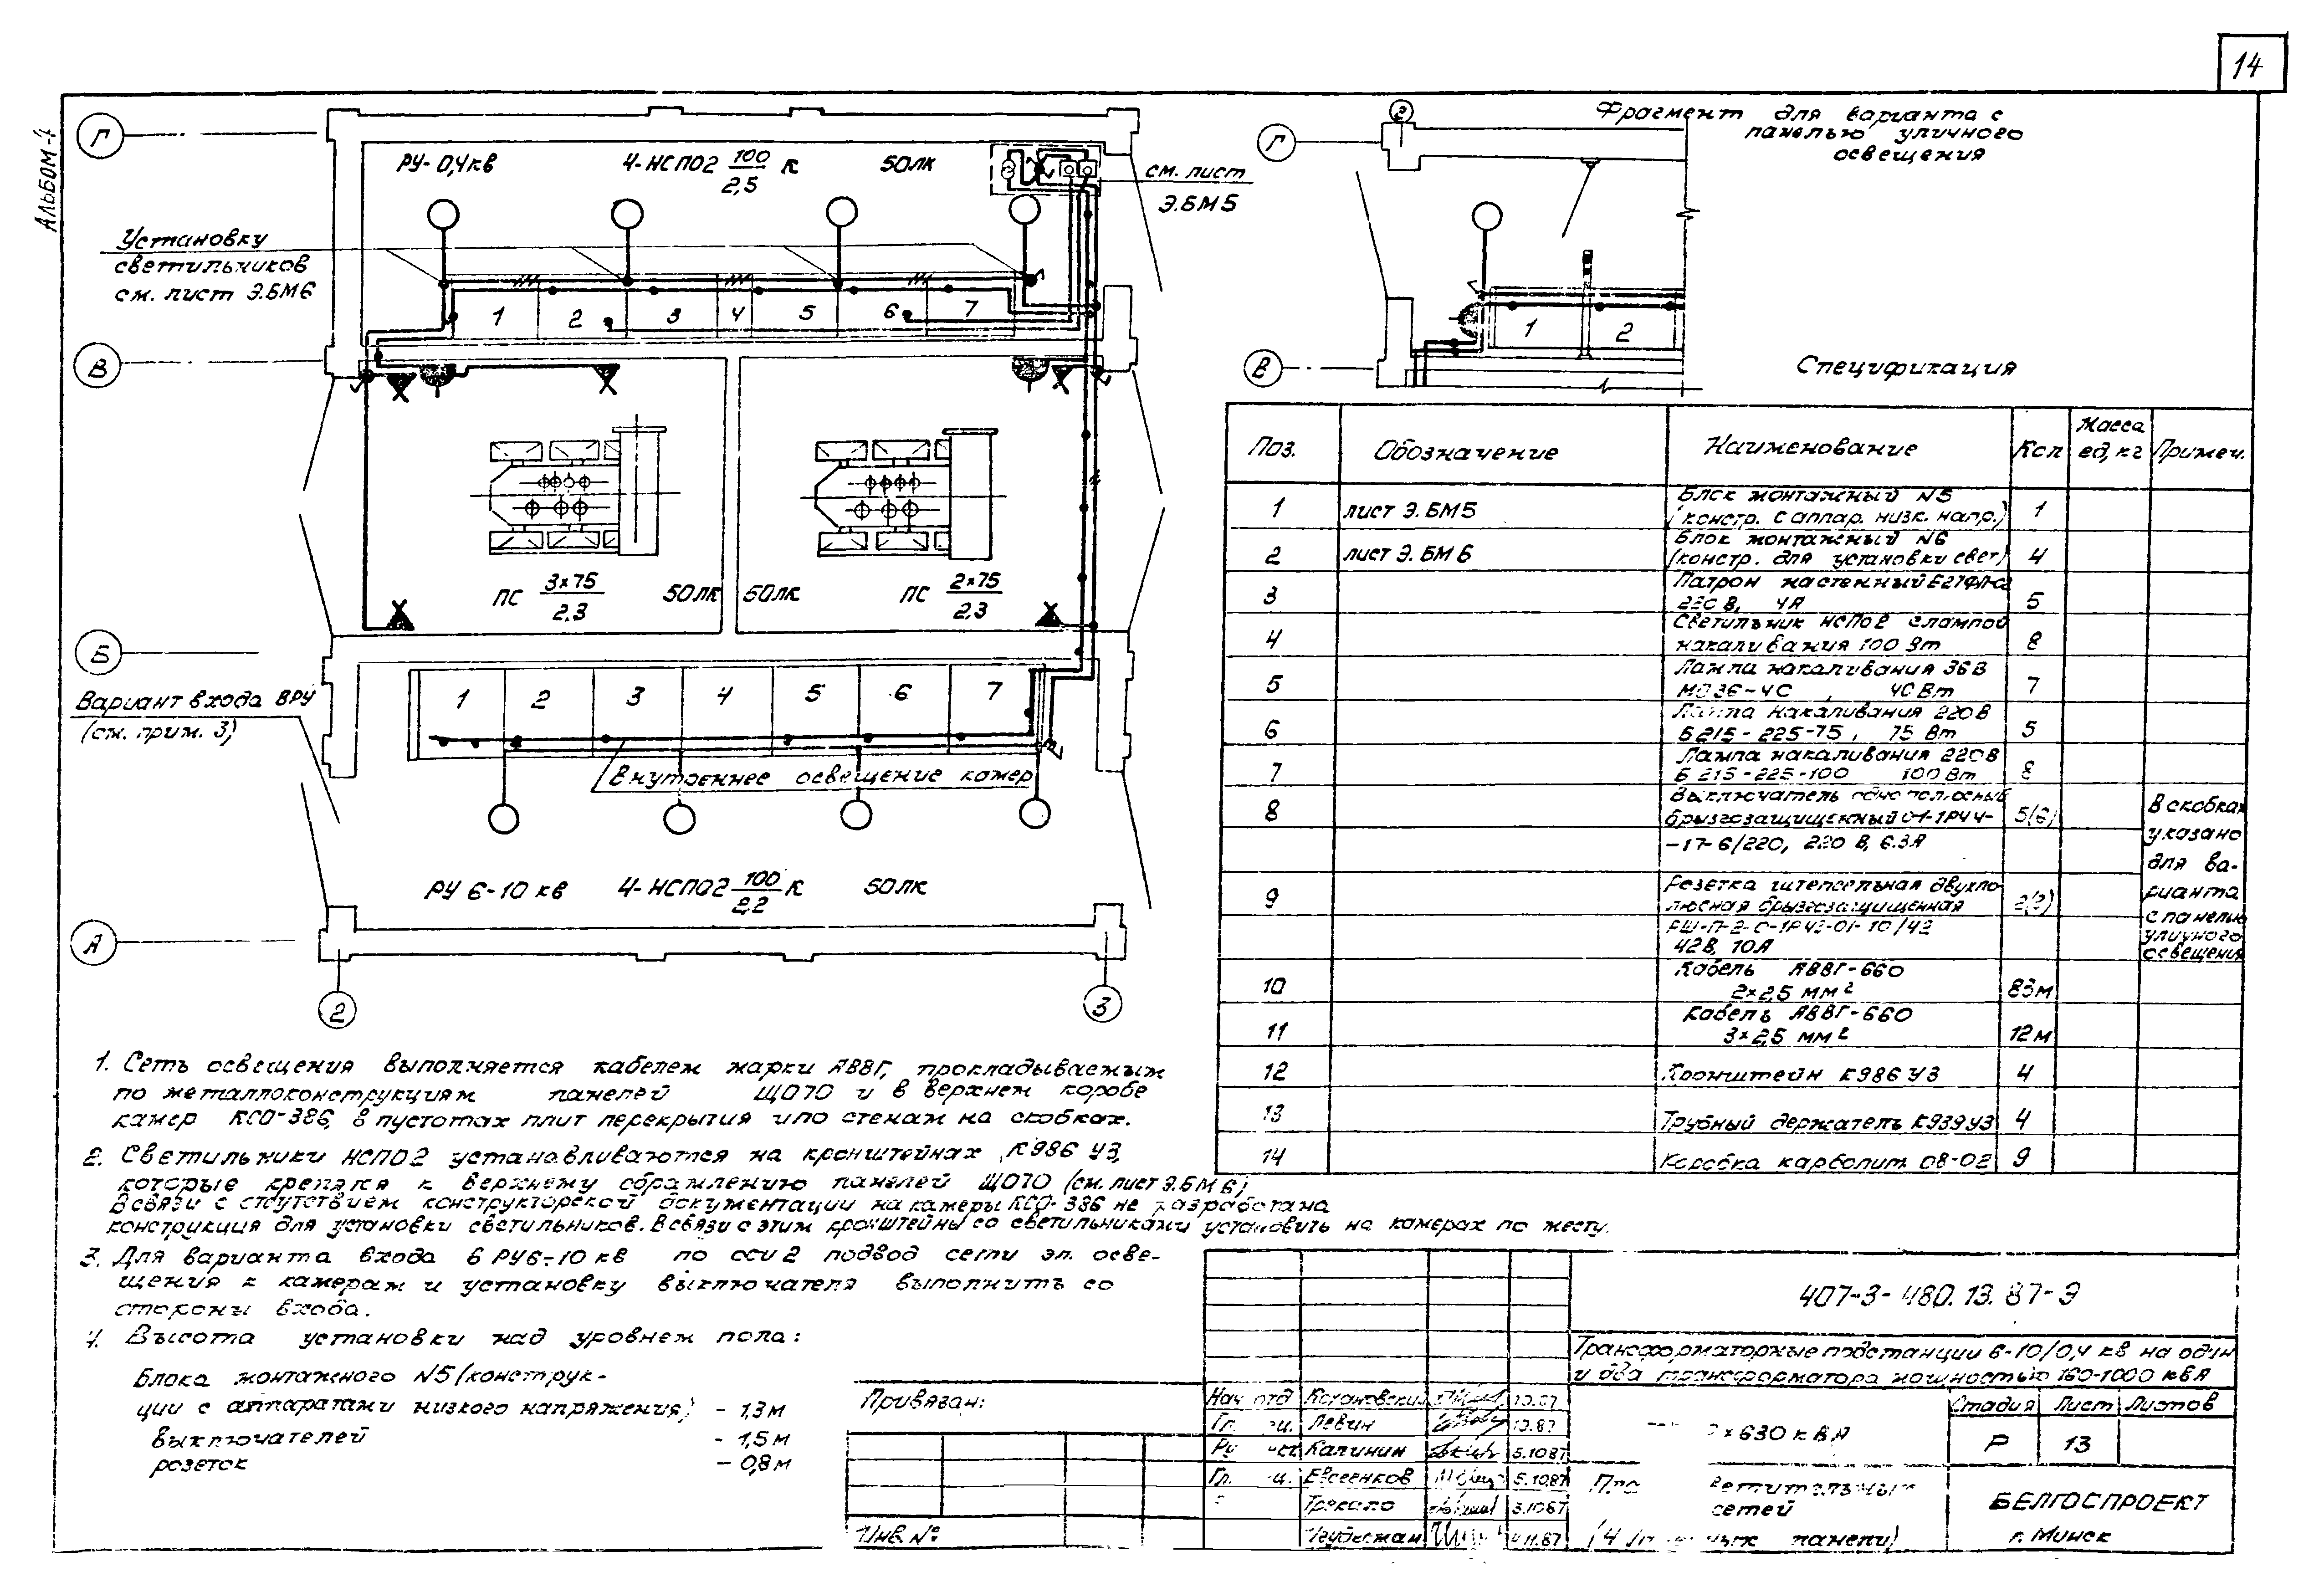 14
АЛЬБОМ-4
Г
РУ-0,4кв 4-НСП02 100/2,5 К 50лк
см. лист
Э.БМ5
Установку
светильников
см. лист Э.БМ6
1 2 3 4 5 6 7
В
ПС 3×75/2,3 50лк
50лк ПС 2×75/2,3
Б
Вариант входа в РУ
(см. прим. 3)
1 2 3 4 5 6 7
Внутреннее освещение камер
РУ 6-10 кв 4-НСП02 100/2,2 К 50лк
А
2 3
Фрагмент для варианта с
панелью уличного
освещения
2
Г
1 2
В
Спецификация
Поз. Обозначение Наименование Кол Масса ед, кг Примеч.
1 лист Э.БМ5 Блок монтажный N5 (констр. с аппар. низк. напр.) 1
2 лист Э.БМ6 Блок монтажный N6 (констр. для установки свет) 4
3 Патрон настенный 220 В, 4А 5
4 Светильник НСП02 с лампой накаливания 100 Вт 8
5 Лампа накаливания 36В МО36-40, 40 Вт 7
6 Лампа накаливания 220В Б215-225-75, 75 Вт 5
7 Лампа накаливания 220В Б215-225-100 100 Вт 8
8 Выключатель однополюсный брызгозащищенный 01-1Р44- 5(6) В скобках
-17-6/220, 220 В, 6.3А указано для ва-
9 Розетка штепсельная двухпо- 2(3) рианта
люсная брызгозащищенная с панелью
РШ-П-2-0-1Р43-01-10/42 уличного
42В, 10А освещения
10 Кабель АВВГ-660 2×2,5 мм² 83м
11 Кабель АВВГ-660 3×2,5 мм² 12м
12 Кронштейн К986 У3 4
13 Трубный держатель К939У3 4
14 Коробка карболит. 08-02 9
1. Сеть освещения выполняется кабелем марки АВВГ, прокладываемым
по металлоконструкциям панелей ЩО70 и в верхнем коробе
камер КСО-386, в пустотах плит перекрытия и по стенам на скобках.
2. Светильники НСП02 устанавливаются на кронштейнах К986 У3,
которые крепятся к верхнему обрамлению панелей ЩО70 (см. лист Э.БМ6)
В связи с отсутствием конструкторской документации на камеры КСО-386 не разработана
конструкция для установки светильников. В связи с этим кронштейны со светильниками установить на камерах по месту.
3. Для варианта входа в РУ6-10 кв по оси 2 подвод сети эл. осве-
щения к камерам и установку выключателя выполнить со
стороны входа.
4. Высота установки над уровнем пола:
Блока монтажного N5 (конструк-
ции с аппаратами низкого напряжения) - 1,3м
выключателей - 1,5м
розеток - 0,8м
407-3-480.13.87-Э
Трансформаторные подстанции 6-10/0,4 кв на один
и два трансформатора мощностью 160-1000 кВА
Привязан:
Инв. №
Нач отд 10.87
Гл. Левин 10.87
Калинин 5.10.87
Гл. Евсеенков 5.10.87
5.10.87
4.11.87
×630 кВА
Стадия Лист Листов
Р 13
сетей
панели)
БЕЛГОСПРОЕКТ
г. Минск